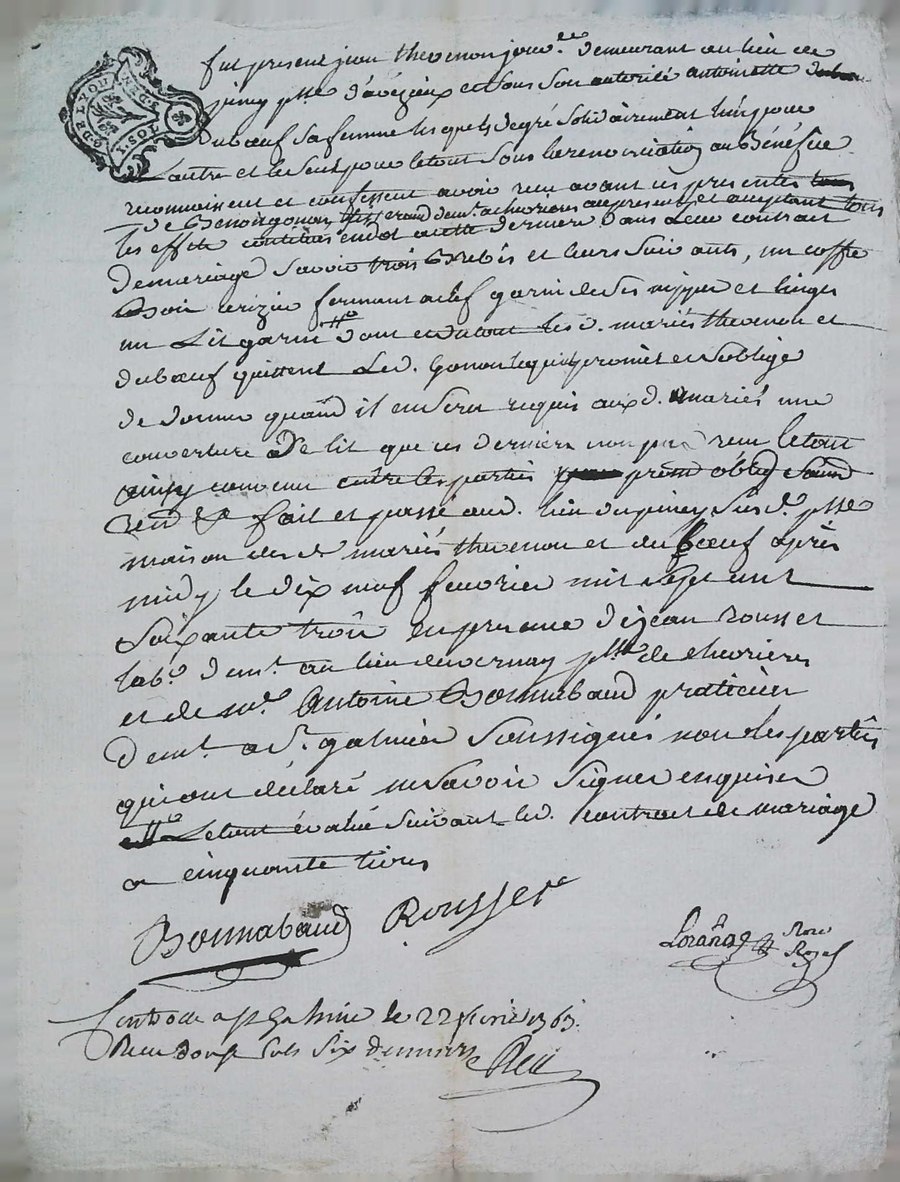 G. DE LYON
1. SOL
fut present jean thevenon jour.er demeurant au lieu de
piney p.sse d'aveizieux et sous son autorité antoinette
duboeuf sa femme lesquels de gré solidairement l'un pour
l'autre et le seul pour le tout sous la renonciation au Bénéfice
reconnoissent et confessent avoir reçu avant ces presentes
de Benoit gonon demt. a chevrieres au present et acceptant tous
les effets constitués en dot a cette derniere dans leur contrait
de mariage savoir trois Brebis et leurs suivants, un coffre
Bois cerizier fermant a clef garni de ses nippes et linges
un Lit garni dont et du tout les d. mariés thevenon et
duboeuf quittent Led. gonon lequel promet et s'oblige
de donner quand il en sera requis auxd. mariés une
couverture De lit que ces derniers nont pas reçu le tout
ainsy convenu entre les parties prom oblig soum
ren &a fait et passé aud. lieu du piney susd. p.sse
maison des d. mariés thevenon et du boeuf après
midy le dix neuf fevrier mil sept cent
soixante trois en presence de jean rousset
lab.r demt. au lieu de vernay p.sse de chevrieres
et de m.e Antoine Bonnabaud praticien
demt. a S.t galmier soussignés non les parties
qui ont déclaré ne savoir signer enquises
Letout évalué suivant led. contract de mariage
a cinquante livres
Bonnabaud Rousset
Lorange No.re Royal
Controllé a st Galmier le 22 fevrier 1763.
Recu douze sols six deniers